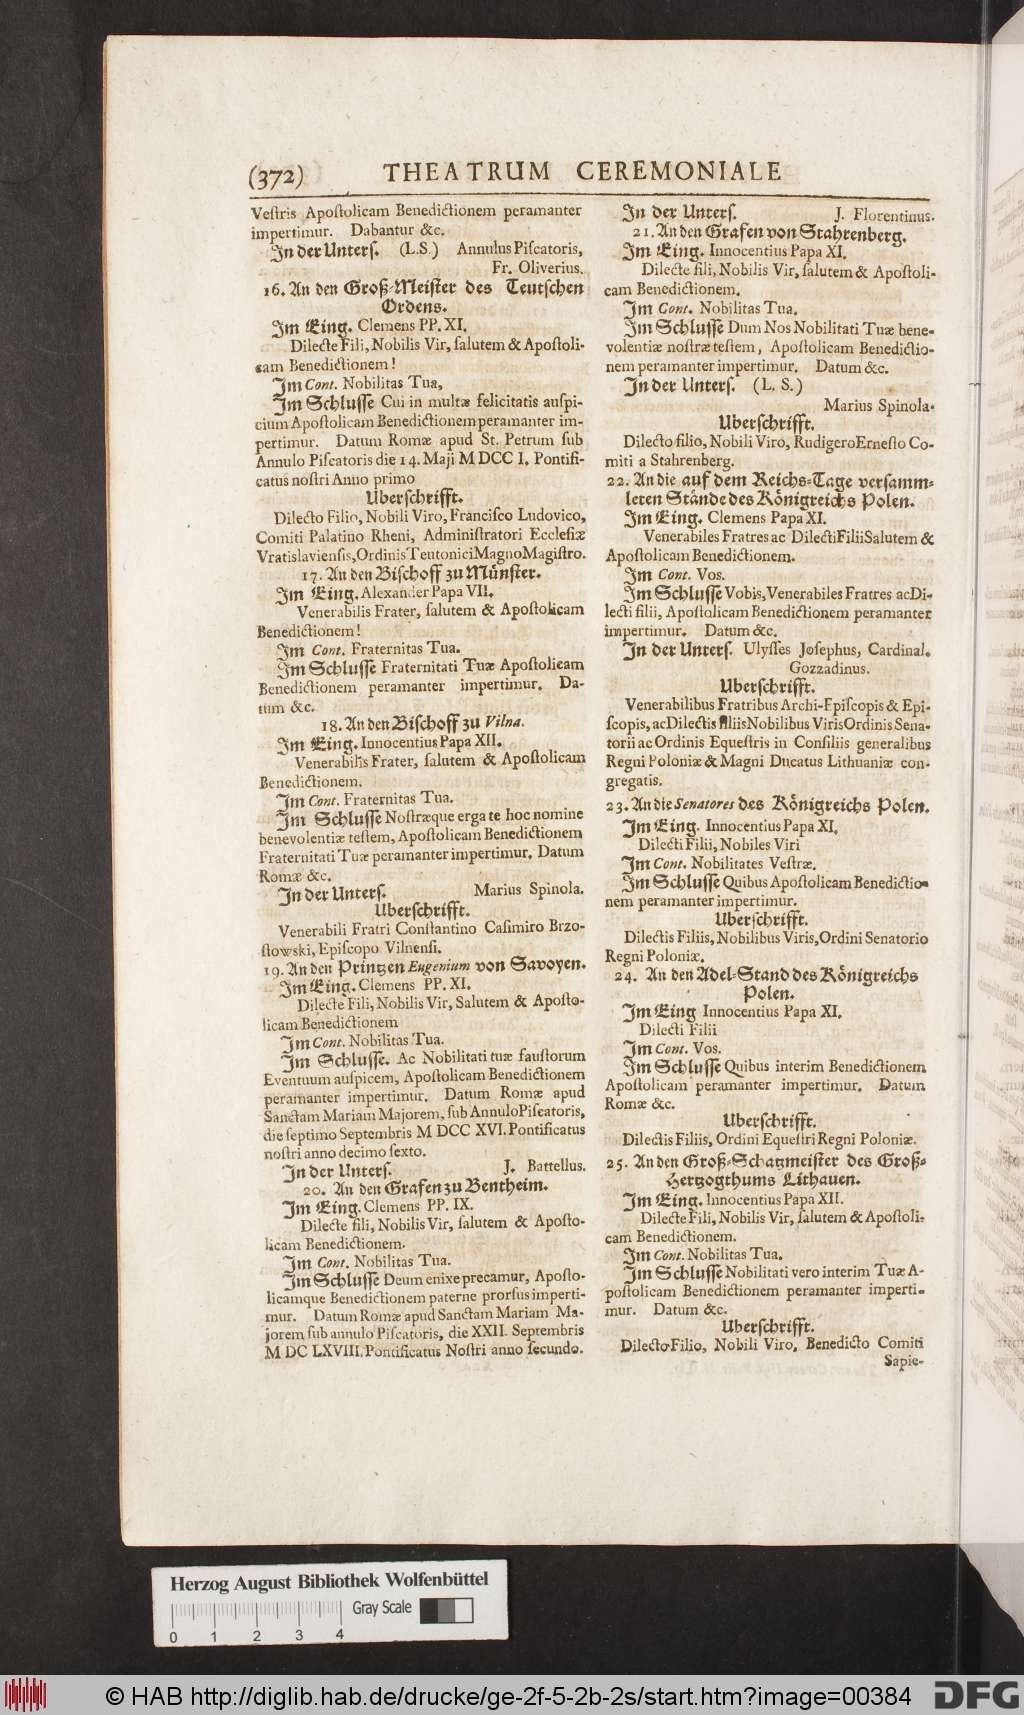 (372) THEATRUM CEREMONIALE
Vestris Apostolicam Benedictionem peramanter
impertimur. Dabantur &c.
In der Unters. (L.S.) Annulus Piscatoris,
Fr. Oliverius.
16. An den Groß-Meister des Teutschen
Ordens.
Im Eing. Clemens PP. XI.
Dilecte Fili, Nobilis Vir, salutem & Apostoli-
cam Benedictionem!
Im Cont. Nobilitas Tua,
Im Schlusse Cui in multæ felicitatis auspi-
cium Apostolicam Benedictionem peramanter im-
pertimur. Datum Romæ apud St. Petrum sub
Annulo Piscatoris die 14. Maji M DCC I. Pontifi-
catus nostri Anno primo
Uberschrifft.
Dilecto Filio, Nobili Viro, Francisco Ludovico,
Comiti Palatino Rheni, Administratori Ecclesiæ
Vratislaviensis, Ordinis Teutonici Magno Magistro.
17. An den Bischoff zu Münster.
Im Eing. Alexander Papa VII.
Venerabilis Frater, salutem & Apostolicam
Benedictionem!
Im Cont. Fraternitas Tua.
Im Schlusse Fraternitati Tuæ Apostolicam
Benedictionem peramanter impertimur. Da-
tum &c.
18. An den Bischoff zu Vilna.
Im Eing. Innocentius Papa XII.
Venerabilis Frater, salutem & Apostolicam
Benedictionem.
Im Cont. Fraternitas Tua.
Im Schlusse Nostræque erga te hoc nomine
benevolentiæ testem, Apostolicam Benedictionem
Fraternitati Tuæ peramanter impertimur. Datum
Romæ &c.
In der Unters. Marius Spinola.
Uberschrifft.
Venerabili Fratri Constantino Casimiro Brzo-
stowski, Episcopo Vilnensi.
19. An den Printzen Eugenium von Savoyen.
Im Eing. Clemens PP. XI.
Dilecte Fili, Nobilis Vir, Salutem & Aposto-
licam Benedictionem
Im Cont. Nobilitas Tua.
Im Schlusse. Ac Nobilitati tuæ faustorum
Eventuum auspicem, Apostolicam Benedictionem
peramanter impertimur. Datum Romæ apud
Sanctam Mariam Majorem, sub Annulo Piscatoris,
die septimo Septembris M DCC XVI. Pontificatus
nostri anno decimo sexto.
In der Unters. J. Battellus.
20. An den Grafen zu Bentheim.
Im Eing. Clemens PP. IX.
Dilecte fili, Nobilis Vir, salutem & Aposto-
licam Benedictionem.
Im Cont. Nobilitas Tua.
Im Schlusse Deum enixe precamur, Aposto-
licamque Benedictionem paterne prorsus imperti-
mur. Datum Romæ apud Sanctam Mariam Ma-
jorem sub annulo Piscatoris, die XXII. Septembris
M DC LXVIII. Pontificatus Nostri anno secundo.
In der Unters. J. Florentinus.
21. An den Grafen von Stahrenberg.
Im Eing. Innocentius Papa XI.
Dilecte fili, Nobilis Vir, salutem & Apostoli-
cam Benedictionem.
Im Cont. Nobilitas Tua.
Im Schlusse Dum Nos Nobilitati Tuæ bene-
volentiæ nostræ testem, Apostolicam Benedictio-
nem peramanter impertimur. Datum &c.
In der Unters. (L. S.)
Marius Spinola.
Uberschrifft.
Dilecto filio, Nobili Viro, Rudigero Ernesto Co-
miti a Stahrenberg.
22. An die auf dem Reichs-Tage versamm-
leten Stände des Königreichs Polen.
Im Eing. Clemens Papa XI.
Venerabiles Fratres ac Dilecti Filii Salutem &
Apostolicam Benedictionem.
Im Cont. Vos.
Im Schlusse Vobis, Venerabiles Fratres ac Di-
lecti filii, Apostolicam Benedictionem peramanter
impertimur. Datum &c.
In der Unters. Ulysses Josephus, Cardinal.
Gozzadinus.
Uberschrifft.
Venerabilibus Fratribus Archi-Episcopis & Epi-
scopis, ac Dilectis filiis Nobilibus Viris Ordinis Sena-
torii ac Ordinis Equestris in Consiliis generalibus
Regni Poloniæ & Magni Ducatus Lithuaniæ con-
gregatis.
23. An die Senatores des Königreichs Polen.
Im Eing. Innocentius Papa XI.
Dilecti Filii, Nobiles Viri
Im Cont. Nobilitates Vestræ.
Im Schlusse Quibus Apostolicam Benedictio-
nem peramanter impertimur.
Uberschrifft.
Dilectis Filiis, Nobilibus Viris, Ordini Senatorio
Regni Poloniæ.
24. An den Adel-Stand des Königreichs
Polen.
Im Eing Innocentius Papa XI.
Dilecti Filii
Im Cont. Vos.
Im Schlusse Quibus interim Benedictionem
Apostolicam peramanter impertimur. Datum
Romæ &c.
Uberschrifft.
Dilectis Filiis, Ordini Equestri Regni Poloniæ.
25. An den Groß-Schatzmeister des Groß-
Hertzogthums Lithauen.
Im Eing. Innocentius Papa XII.
Dilecte Fili, Nobilis Vir, salutem & Apostoli-
cam Benedictionem.
Im Cont. Nobilitas Tua.
Im Schlusse Nobilitati vero interim Tuæ A-
postolicam Benedictionem peramanter imperti-
mur. Datum &c.
Uberschrifft.
Dilecto Filio, Nobili Viro, Benedicto Comiti
Sapie-
Herzog August Bibliothek Wolfenbüttel
Gray Scale
0 1 2 3 4
© HAB http://diglib.hab.de/drucke/ge-2f-5-2b-2s/start.htm?image=00384 DFG